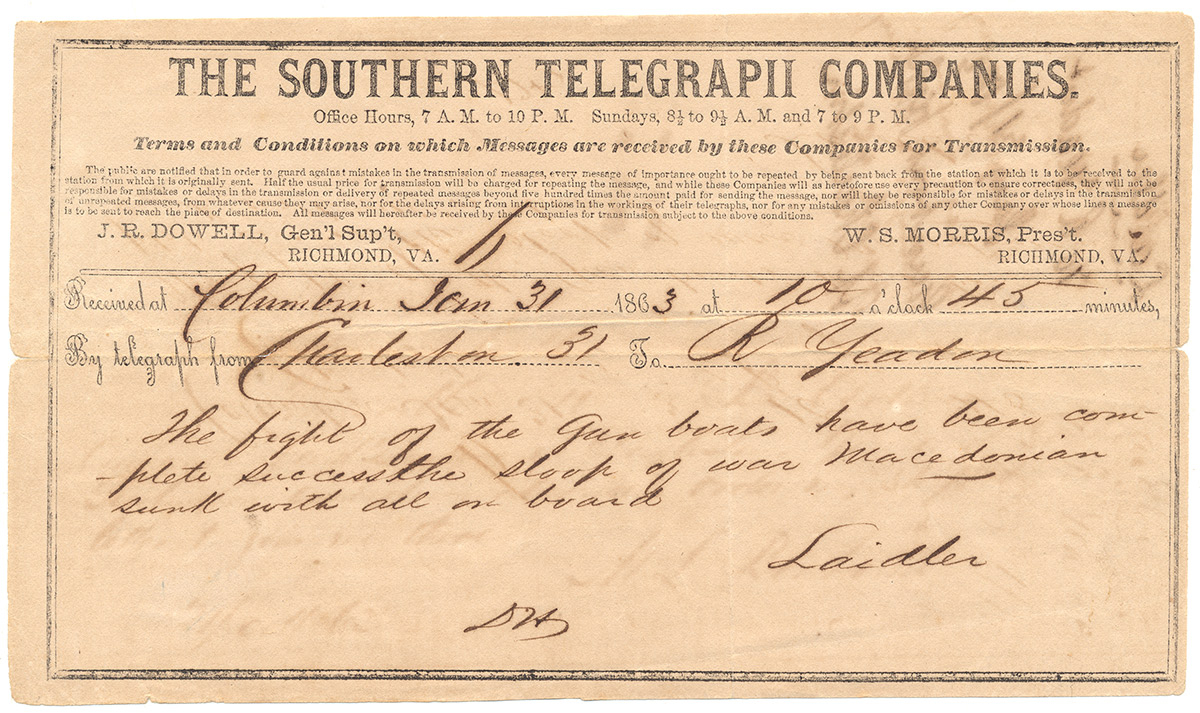 THE SOUTHERN TELEGRAPH COMPANIES.
Office Hours, 7 A. M. to 10 P. M. Sundays, 8½ to 9½ A. M. and 7 to 9 P. M.
Terms and Conditions on which Messages are received by these Companies for Transmission.
The public are notified that in order to guard against mistakes in the transmission of messages, every message of importance ought to be repeated by being sent back from the station at which it is to be received to the
station from which it is originally sent. Half the usual price for transmission will be charged for repeating the message, and while these Companies will as heretofore use every precaution to ensure correctness, they will not be
responsible for mistakes or delays in the transmission or delivery of repeated messages beyond five hundred times the amount paid for sending the message, nor will they be responsible for mistakes or delays in the transmission
of unrepeated messages, from whatever cause they may arise, nor for the delays arising from interruptions in the workings of their telegraphs, nor for any mistakes or omissions of any other Company over whose lines a message
is to be sent to reach the place of destination. All messages will hereafter be received by these Companies for transmission subject to the above conditions.
J. R. DOWELL, Gen'l Sup't, W. S. MORRIS, Pres't.
RICHMOND, VA. RICHMOND, VA.
Received at Columbia Jan 31 1863 at 10 o'clock 45 minutes,
By telegraph from Charleston 31 To R Yeadon
The fight of the Gun boats have been com-
-plete success the sloop of war Macedonian
sunk with all on board
Laidler
DH